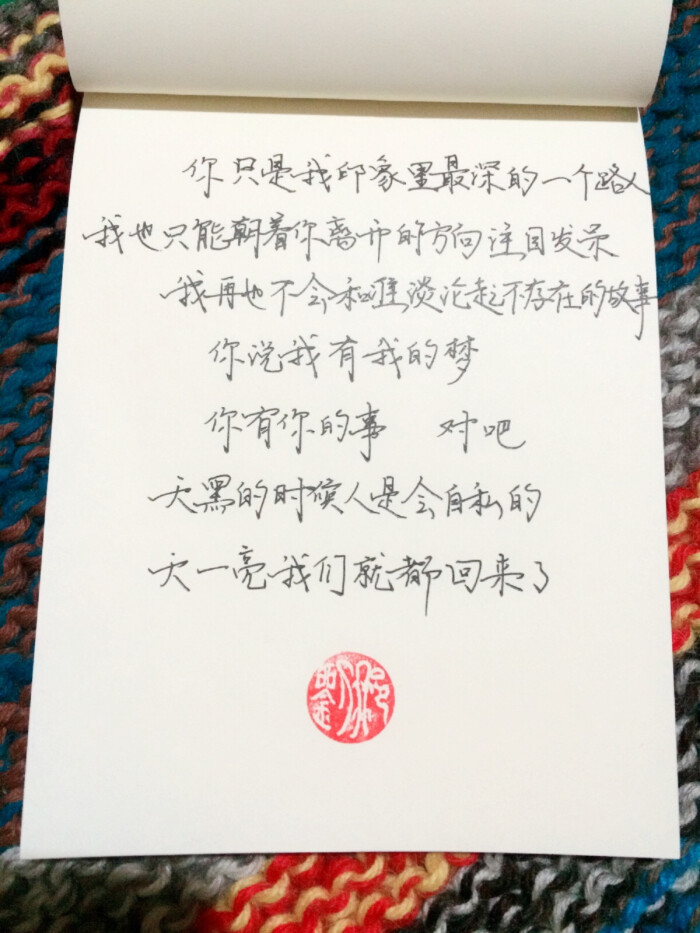 你只是我印象里最深的一个路人
我也只能朝着你离开的方向注目发呆
我再也不会和谁谈论起不存在的故事
你说我有我的梦
你有你的事 对吧
天黑的时候人是会自私的
天一亮我们就都回来了